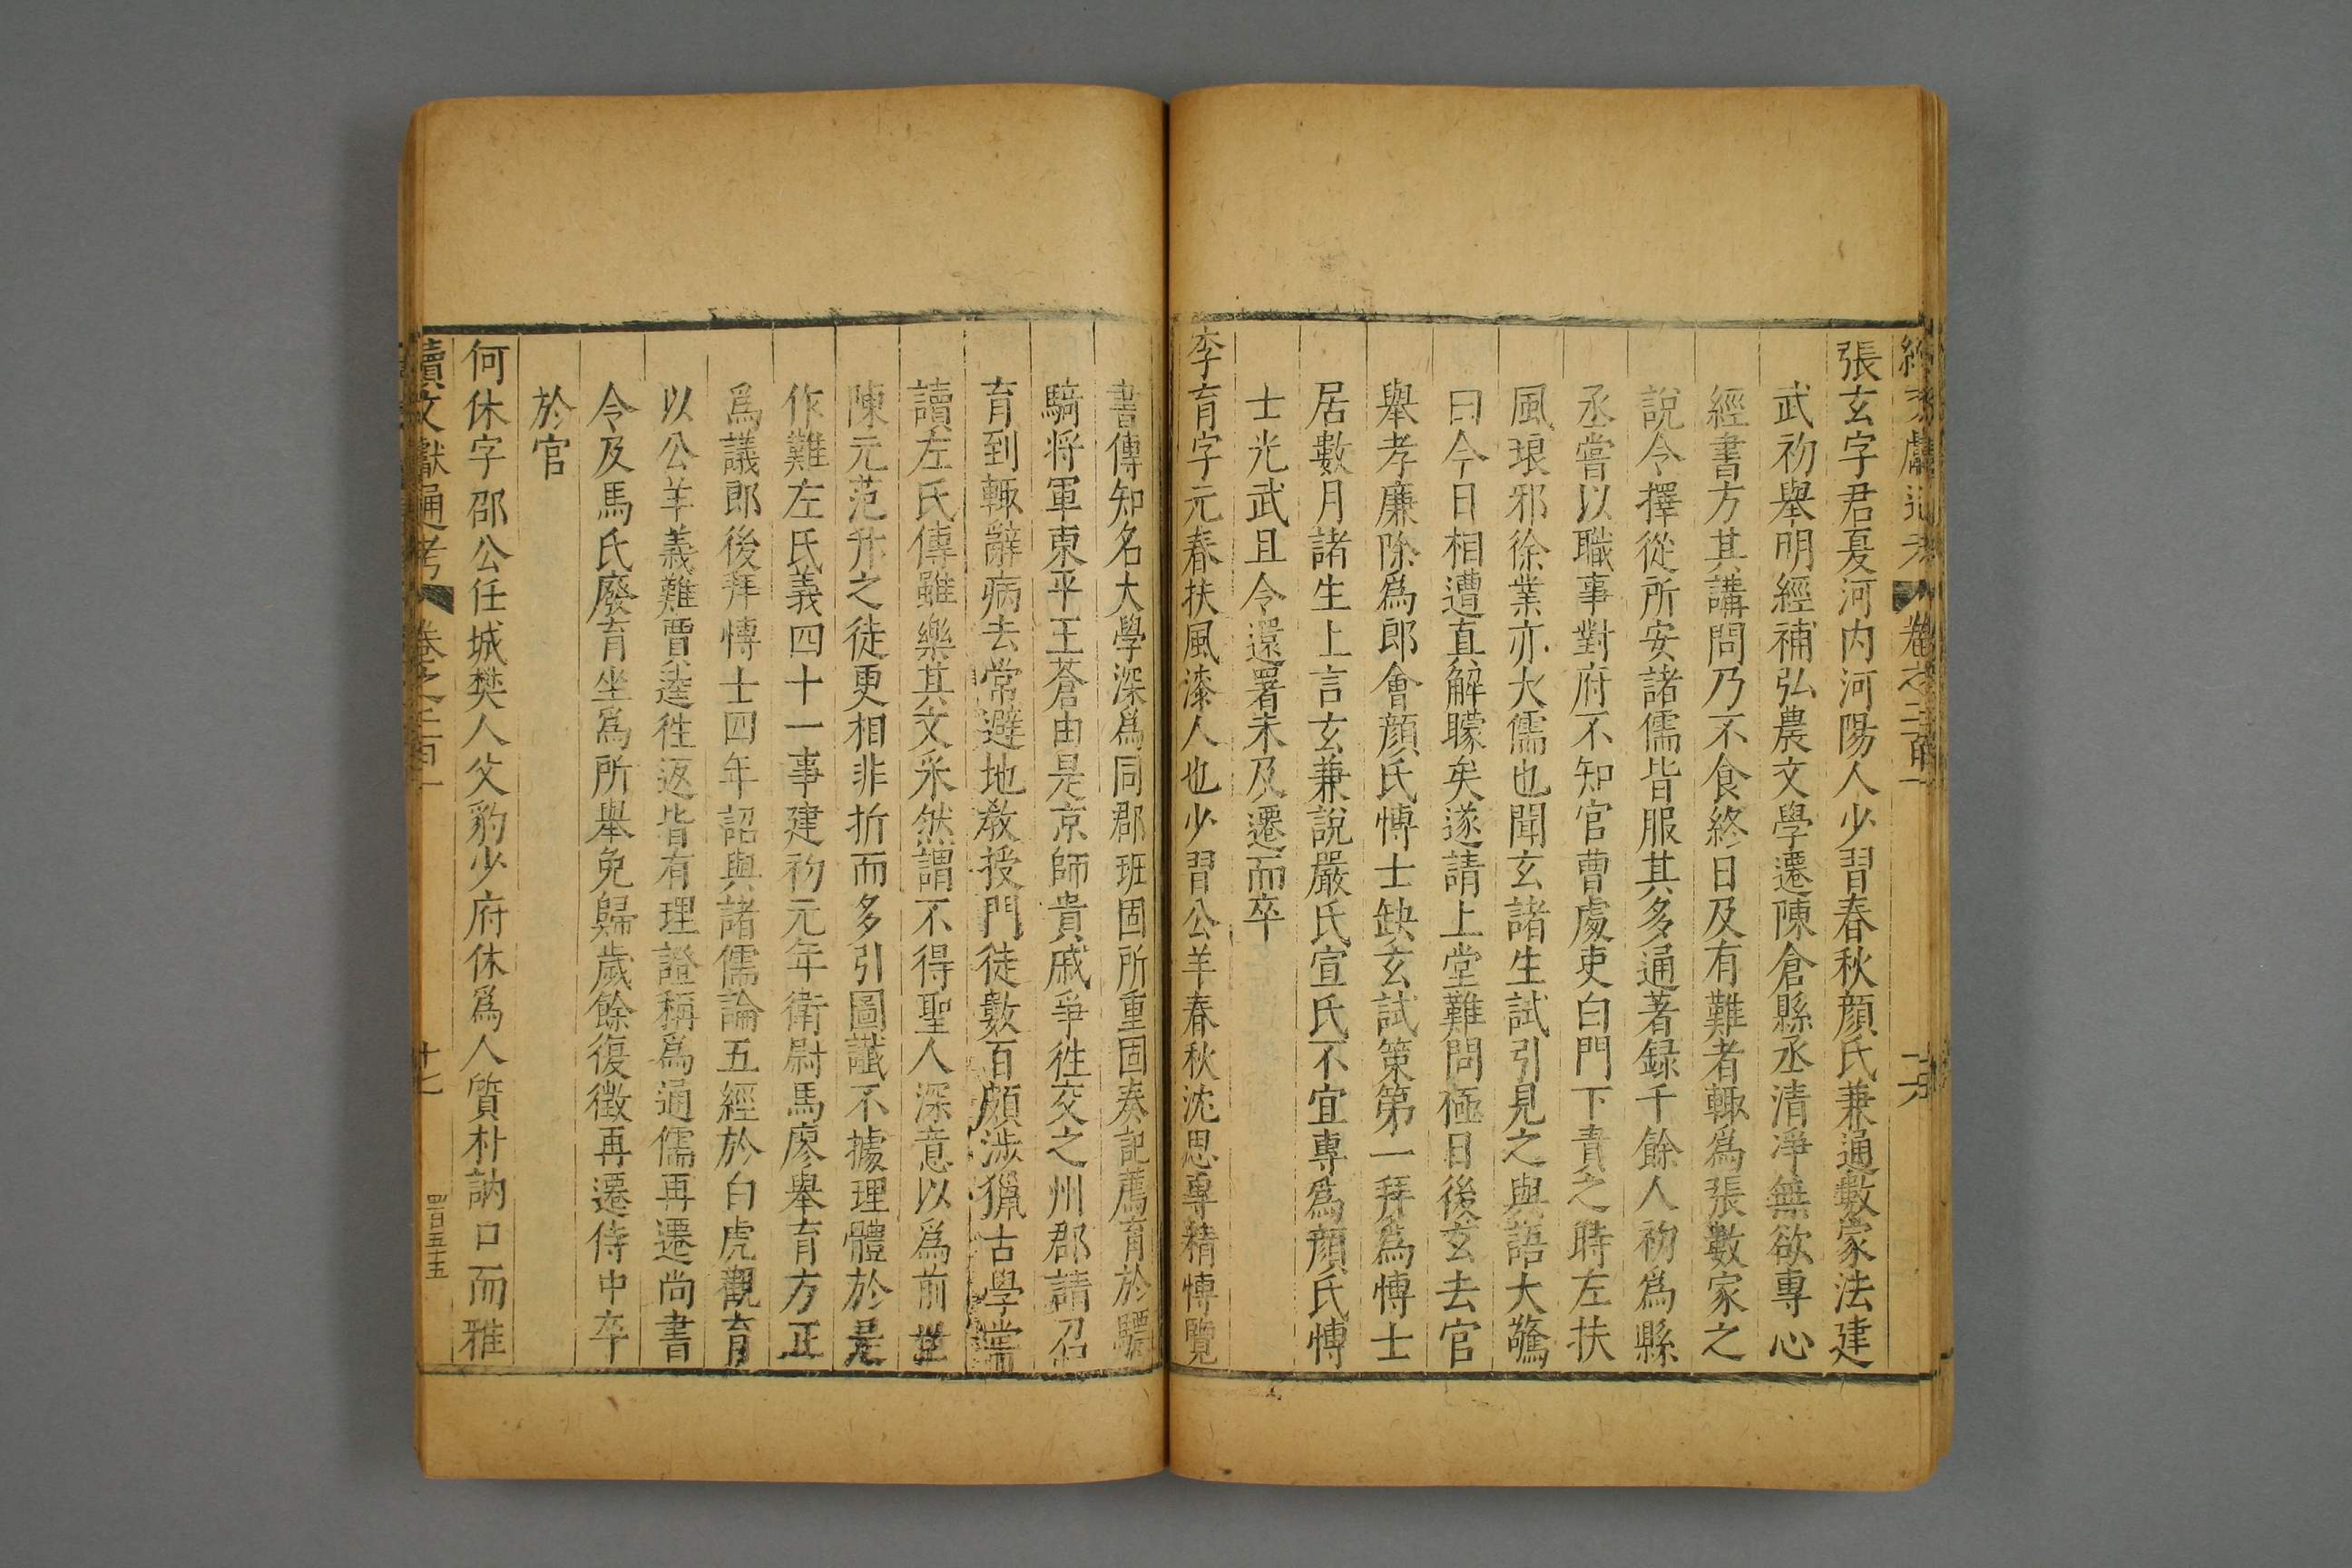 張玄字君夏河内河陽人少習春秋顔氏兼通數家法建
武初舉明經補弘農文學遷陳倉縣丞清凈無欲專心
經書方其講問乃不食終日及有難者輙爲張數家之
說令擇從所安諸儒皆服其多通著録千餘人初爲縣
丞嘗以職事對府不知官曹處吏白門下責之時左扶
風琅邪徐業亦大儒也聞玄諸生試引見之與語大驚
曰今日相遭直解矇矣遂請上堂難問極日後玄去官
舉孝廉除爲郎會顔氏愽士缺玄試策第一拜爲愽士
居數月諸生上言玄兼說嚴氏宣氏不宜專爲顔氏愽
士光武且令還署未及遷而卒
李育字元春扶風漆人也少習公羊春秋沈思專精愽覽
書傳知名大學深爲同郡班固所重固奏記薦育於驃
騎将軍東平王蒼由是京師貴戚爭徃交之州郡請召
育到輙辭病去常避地敎授門徒數百頗涉獵古學嘗
讀左氏傳雖樂其文采然謂不得聖人深意以爲前世
陳元范升之徒更相非折而多引圖讖不據理體於是
作難左氏義四十一事建初元年衛尉馬廖舉育方正
爲議郎後拜愽士四年詔與諸儒論五經於白虎觀育
以公羊義難賈逵徃返皆有理證稱爲通儒再遷尚書
令及馬氏廢育坐爲所舉免歸歲餘復徵再遷侍中卒
於官
何休字邵公任城樊人父豹少府休爲人質朴訥口而雅
續文獻通考 卷之二百一 十七 四百五十五